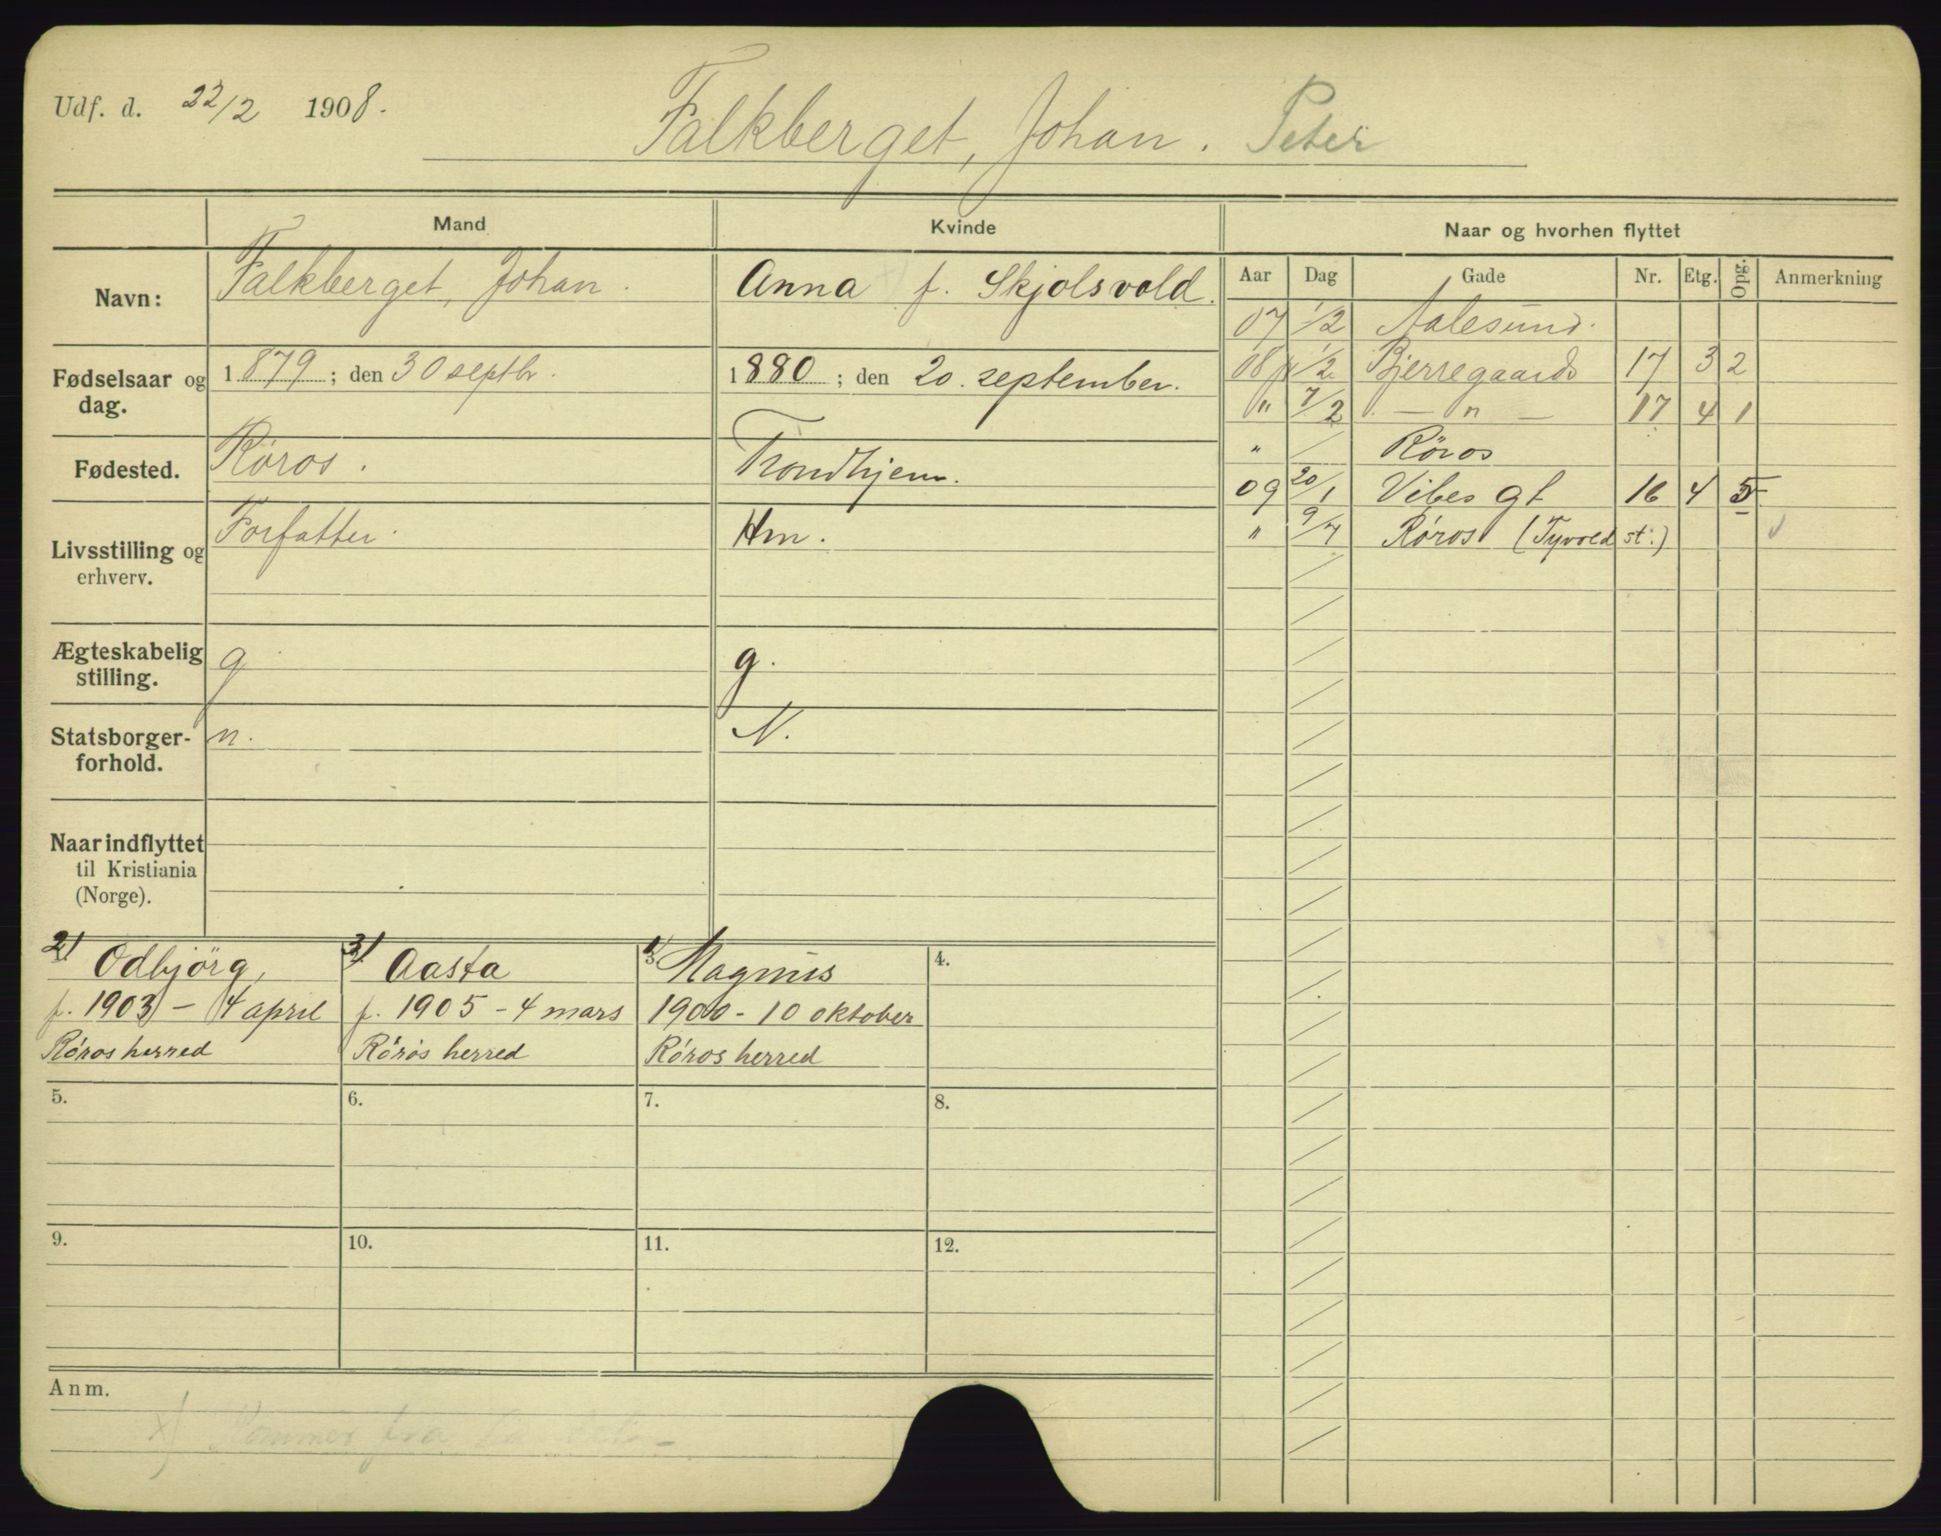 Udf. d. 22/2 1908.
Falkberget, Johan. Peter
Mand Kvinde Naar og hvorhen flyttet
Aar Dag Gade Nr. Etg. Opg. Anmerkning
Navn: Falkberget, Johan. Anna f. Skjolsvold.
07 1/2 Aalesund.
Fødselsaar og dag. 1879; den 30 septbr. 1880; den 20. september.
08 1/2 Bjerregaards 17 3 2
" 7/2 — " — 17 4 1
Fødested. Røros. Trondhjem.
" / Röros
09 20/1 Vibes gt 16 4 5
Livsstilling og erhverv. Forfatter. Hm.
" 9/7 Røros (Tyvold st.)
Ægteskabelig stilling. g. g.
Statsborger-forhold. n. N.
Naar indflyttet til Kristiania (Norge).
2) Odbjörg, 3) Aasta 1) Magnus 4.
f. 1903 - 4 april f. 1905 - 4 mars 1900 - 10 oktober
Róros herred Róros herred Róros herred
5. 6. 7. 8.
9. 10. 11. 12.
Anm.
x) Kommer fra